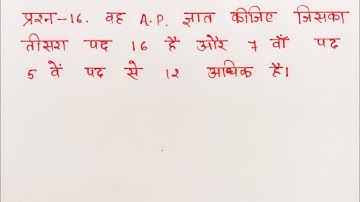 प्रश्न-16. वह A.P. ज्ञात कीजिए जिसका
तीसरा पद 16 है और 7 वाँ पद
5 वें पद से 12 अधिक है।